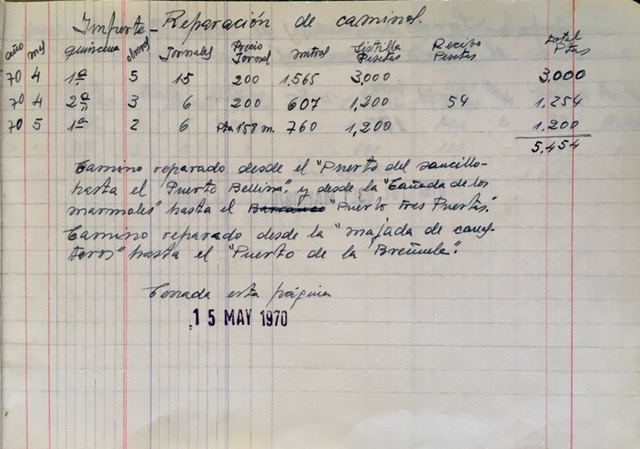 Importe - Reparación de caminos.
año mes quincena obreros Jornales Precio Jornal metros Listilla Pesetas Recibo Pesetas Total Ptas
70 4 1ª 5 15 200 1,565 3,000 3,000
70 4 2ª 3 6 200 607 1,200 54 1.254
70 5 1ª 2 6 Pta 1'58 m. 760 1,200 1.200
5,454
Camino reparado desde el "Puerto del
hasta el "Puerto Bellina". y desde la "Cañada de los
marmoles" hasta el Barranco "Puerto tres Puertas".
Camino reparado desde la "majada de
teros" hasta el "Puerto de la Breñuela".
Cerrada esta página
15 MAY 1970